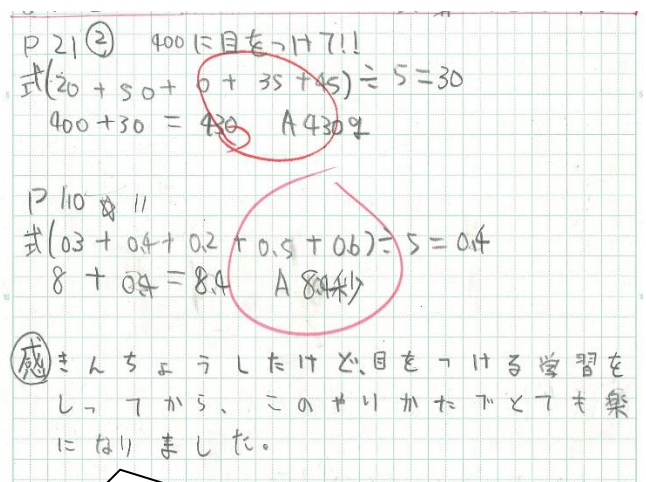 P 21 ② 400に目をつけて!!
式(20 + 50 + 0 + 35 + 45) ÷ 5 = 30
400 + 30 = 430 A 430g
P 110 ☆ 11
式(0.3 + 0.4 + 0.2 + 0.5 + 0.6) ÷ 5 = 0.4
8 + 0.4 = 8.4 A 8.4秒
感 きんちょうしたけど、目をつける学習を
しってから、このやりかたでとても楽
になりました。